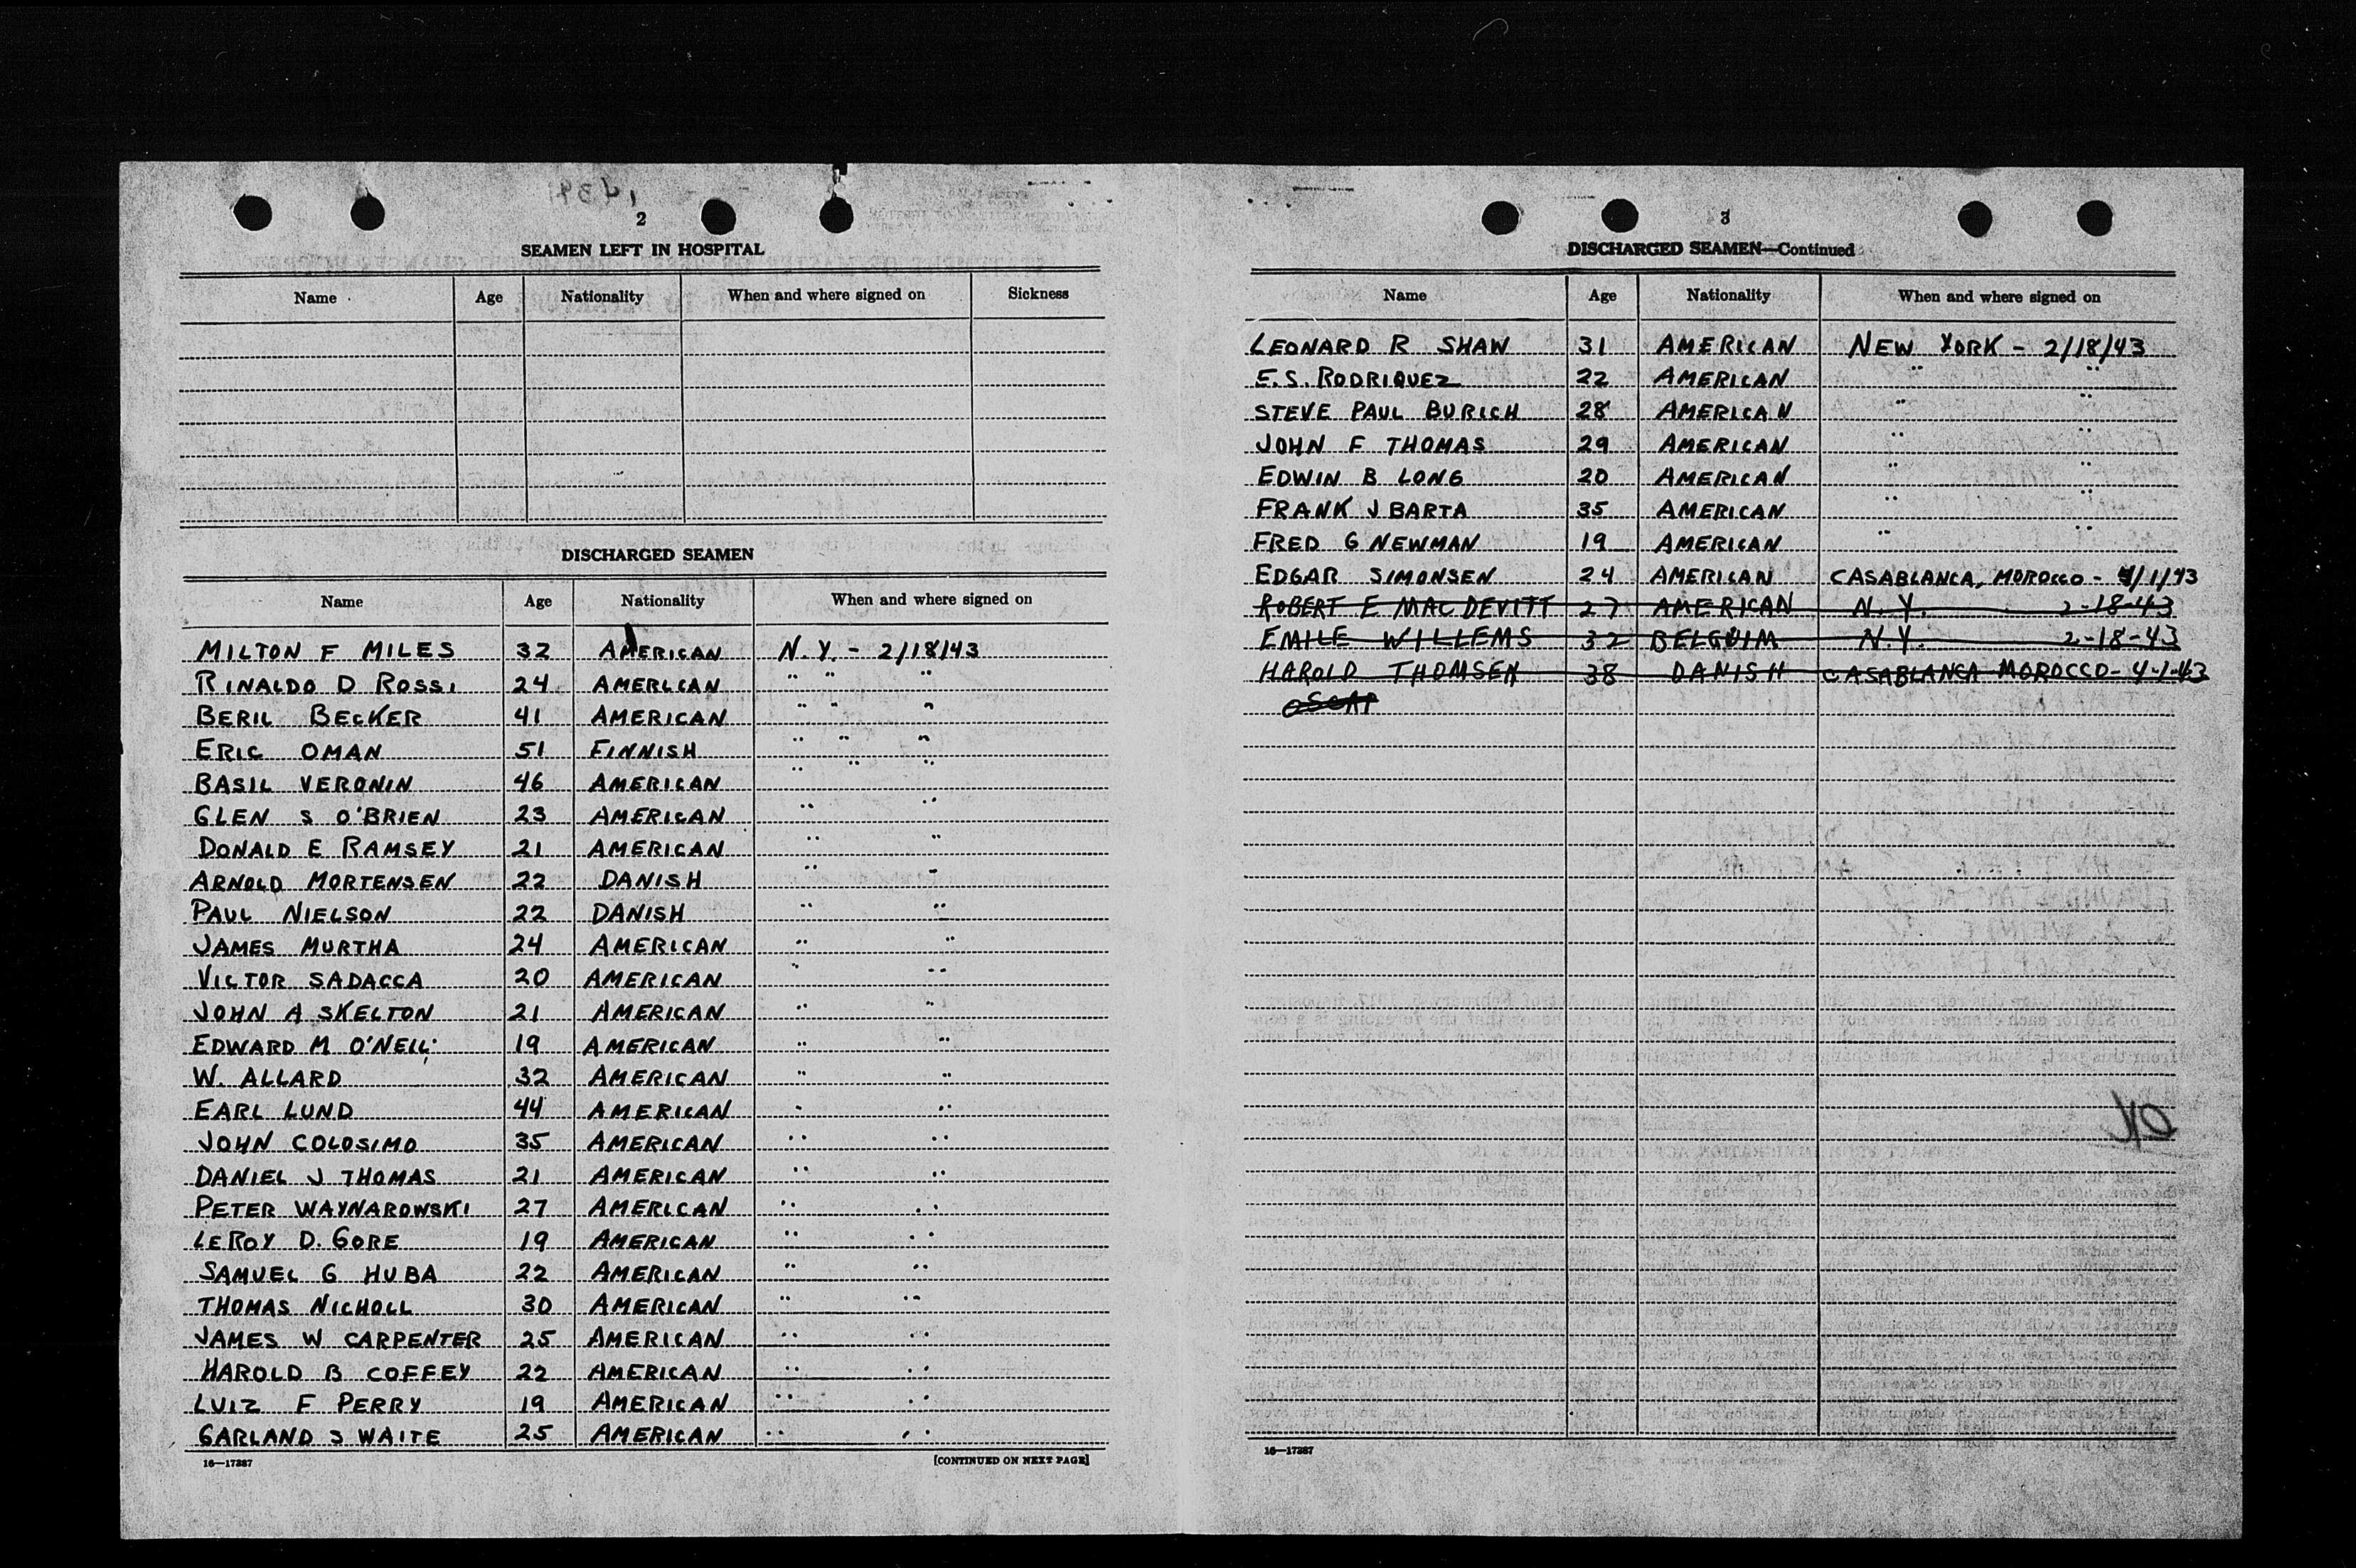 2
SEAMEN LEFT IN HOSPITAL
Name Age Nationality When and where signed on Sickness
DISCHARGED SEAMEN
Name Age Nationality When and where signed on
MILTON F MILES 32 AMERICAN N.Y. - 2/18/43
RINALDO D ROSSI 24 AMERICAN " " "
BERIL BECKER 41 AMERICAN " " "
ERIC OMAN 51 FINNISH " " "
BASIL VERONIN 46 AMERICAN " " "
GLEN S O'BRIEN 23 AMERICAN " "
DONALD E RAMSEY 21 AMERICAN " "
ARNOLD MORTENSEN 22 DANISH " "
PAUL NIELSON 22 DANISH " "
JAMES MURTHA 24 AMERICAN " "
VICTOR SADACCA 20 AMERICAN " "
JOHN A SKELTON 21 AMERICAN " "
EDWARD M O'NEIL 19 AMERICAN " "
W. ALLARD 32 AMERICAN " "
EARL LUND 44 AMERICAN " "
JOHN COLOSIMO 35 AMERICAN " "
DANIEL J THOMAS 21 AMERICAN " "
PETER WAYNAROWSKI 27 AMERICAN " "
LEROY D. GORE 19 AMERICAN " "
SAMUEL G HUBA 22 AMERICAN " "
THOMAS NICHOLL 30 AMERICAN " "
JAMES W CARPENTER 25 AMERICAN " "
HAROLD B COFFEY 22 AMERICAN " "
LUIZ F PERRY 19 AMERICAN " "
GARLAND S WAITE 25 AMERICAN " "
16—17387 [CONTINUED ON NEXT PAGE]
3
DISCHARGED SEAMEN—Continued
Name Age Nationality When and where signed on
LEONARD R SHAW 31 AMERICAN NEW YORK - 2/18/43
E.S. RODRIQUEZ 22 AMERICAN " "
STEVE PAUL BURICH 28 AMERICAN " "
JOHN F THOMAS 29 AMERICAN " "
EDWIN B LONG 20 AMERICAN " "
FRANK J BARTA 35 AMERICAN " "
FRED G NEWMAN 19 AMERICAN " "
EDGAR SIMONSEN 24 AMERICAN CASABLANCA, MOROCCO - 4/1/43
ROBERT E MACDEVITT 27 AMERICAN N.Y. 2-18-43
EMILE WILLEMS 32 BELGUIM N.Y. 2-18-43
HAROLD THOMSEN 38 DANISH CASABLANCA MOROCCO - 4-1-43
16—17387